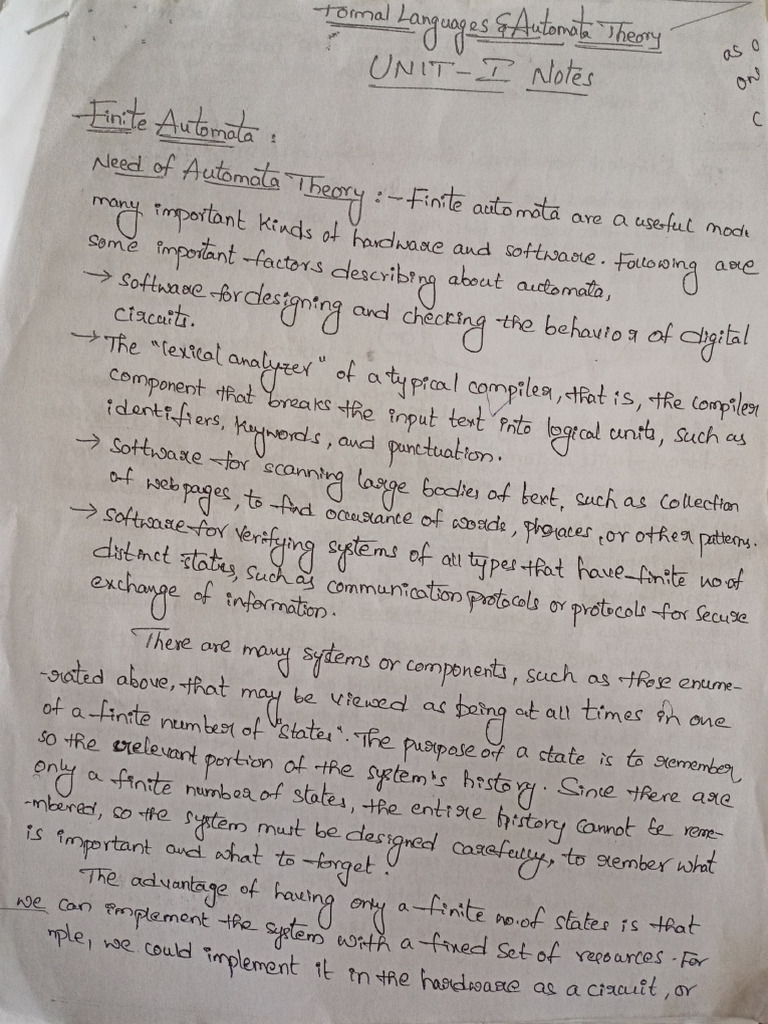 Formal Languages & Automata Theory
UNIT-I Notes
as o
on
c
Finite Automata :
Need of Automata Theory :- Finite automata are a useful mode
many important kinds of hardware and software. Following are
some important factors describing about automata,
→ software for designing and checking the behavior of digital
circuits.
→ The "lexical analyzer" of a typical compiler, that is, the compiler
component that breaks the input text into logical units, such as
identifiers, keywords, and punctuation.
→ software for scanning large bodies of text, such as collection
of web pages, to find occurance of words, phraces, or other patterns.
→ software for verifying systems of all types that have finite no of
distinct states, such as communication protocols or protocols for secure
exchange of information.
There are many systems or components, such as those enume-
-rated above, that may be viewed as being at all times in one
of a finite number of "states". The purpose of a state is to remember
so the relevant portion of the system's history. Since there are
only a finite number of states, the entire history cannot be reme-
-mbered, so the system must be designed carefully, to rember what
is important and what to forget.
The advantage of having only a finite no. of states is that
we can implement the system with a fixed set of resources. For
mple, we could implement it in the hardware as a circuit, or